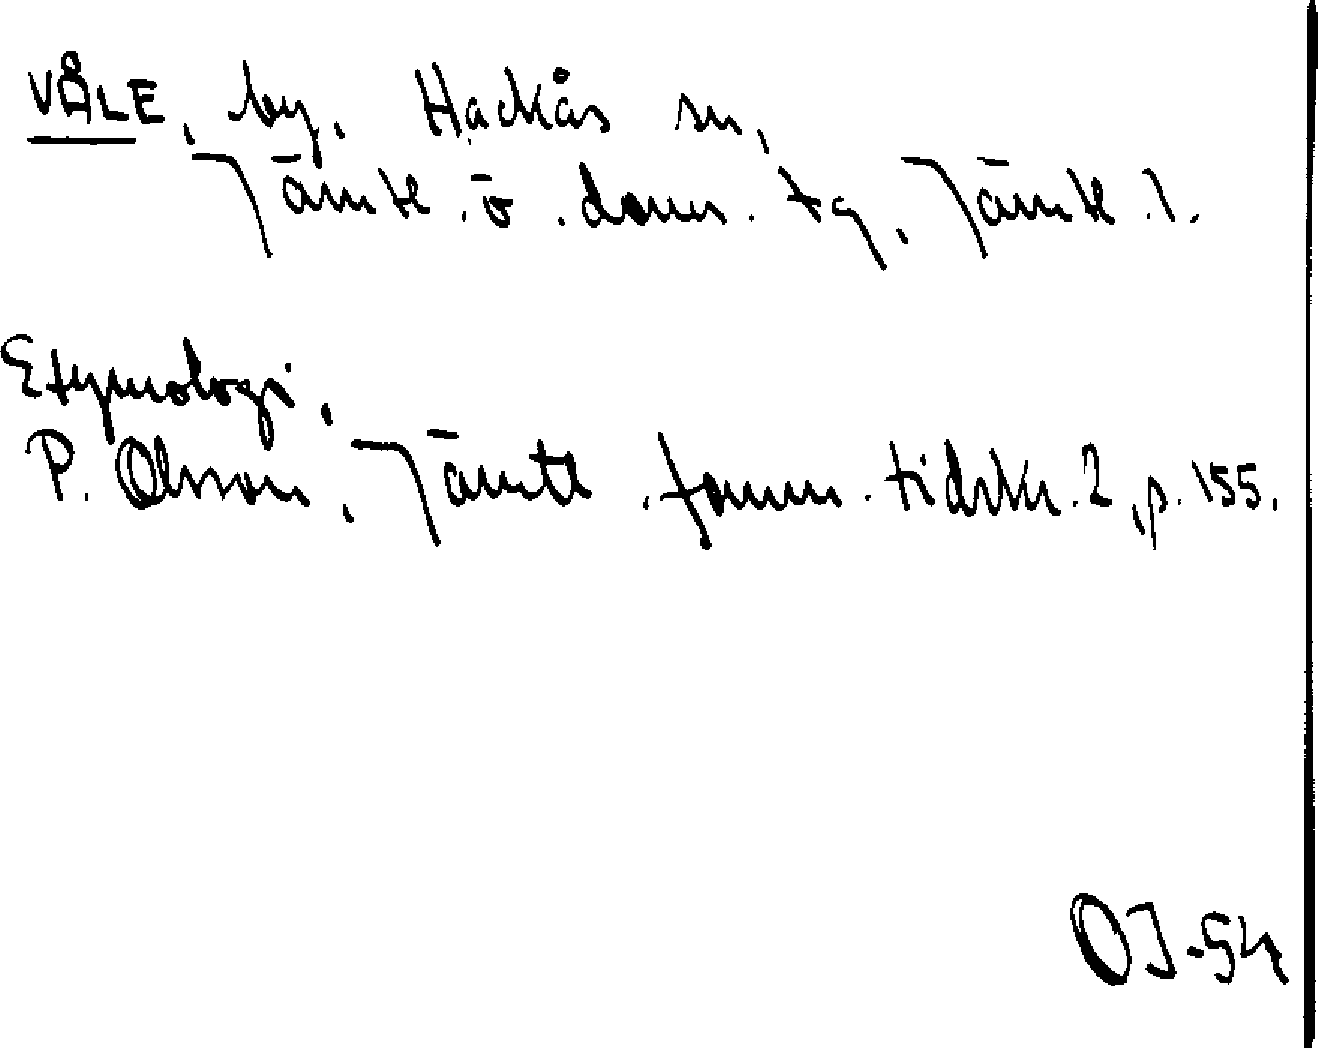 VÅLE, by, Hackås sn,
Jämtl. ö. doms. tg, Jämtl. l.
Etymologi.
P. Olsson, Jämtl. fornm. tidskr. 2, p. 155.
OJ-54